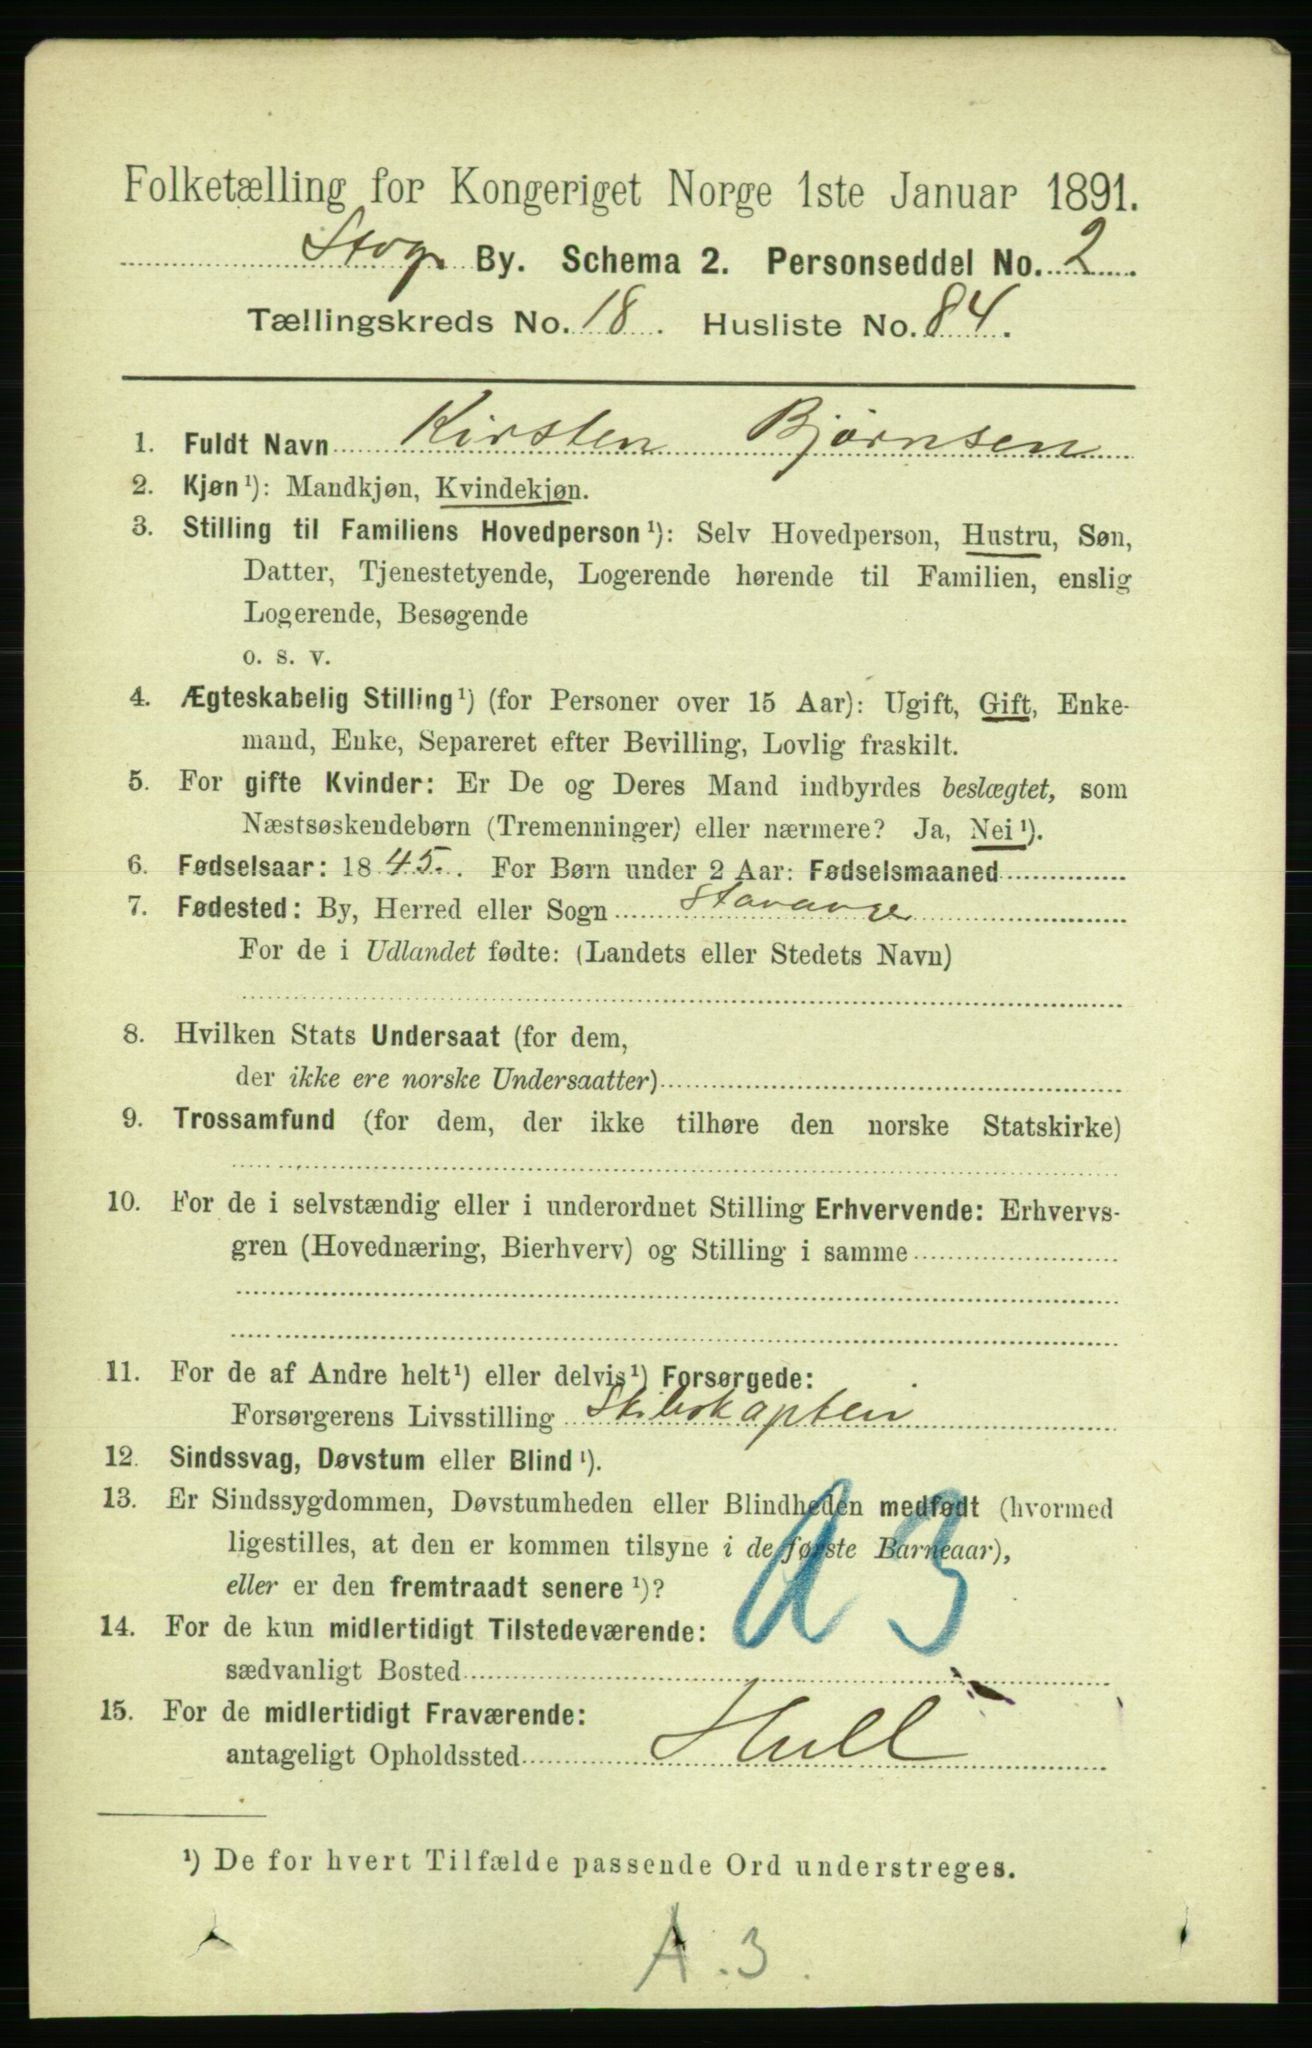 Folketælling for Kongeriget Norge 1ste Januar 1891.
Stvgr By. Schema 2. Personseddel No. 2
Tællingskreds No. 18. Husliste No. 84.
1. Fuldt Navn Kirsten Bjørnsen
2. Kjøn ¹): Mandkjøn, Kvindekjøn.
3. Stilling til Familiens Hovedperson ¹): Selv Hovedperson, Hustru, Søn,
Datter, Tjenestetyende, Logerende hørende til Familien, enslig
Logerende, Besøgende
o. s. v.
4. Ægteskabelig Stilling ¹) (for Personer over 15 Aar): Ugift, Gift, Enke-
mand, Enke, Separeret efter Bevilling, Lovlig fraskilt.
5. For gifte Kvinder: Er De og Deres Mand indbyrdes beslægtet, som
Næstsøskendebørn (Tremenninger) eller nærmere? Ja, Nei ¹).
6. Fødselsaar: 1845. For Børn under 2 Aar: Fødselsmaaned
7. Fødested: By, Herred eller Sogn Stavanger
For de i Udlandet fødte: (Landets eller Stedets Navn)
8. Hvilken Stats Undersaat (for dem,
der ikke ere norske Undersaatter)
9. Trossamfund (for dem, der ikke tilhøre den norske Statskirke)
10. For de i selvstændig eller i underordnet Stilling Erhvervende: Erhvervs-
gren (Hovednæring, Bierhverv) og Stilling i samme
11. For de af Andre helt ¹) eller delvis ¹) Forsørgede:
Forsørgerens Livsstilling Skibskaptein
12. Sindssvag, Døvstum eller Blind ¹).
13. Er Sindssygdommen, Døvstumheden eller Blindheden medfødt (hvormed
ligestilles, at den er kommen tilsyne i de første Barneaar),
eller er den fremtraadt senere ¹)?
14. For de kun midlertidigt Tilstedeværende:
sædvanligt Bosted
15. For de midlertidigt Fraværende:
antageligt Opholdssted Hull
¹) De for hvert Tilfælde passende Ord understreges.
A. 3.